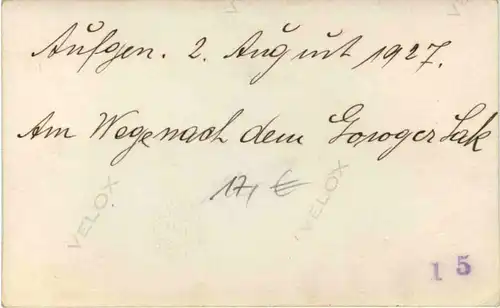 Aufgen. 2. August 1927.
Am Wege nach dem Goroger Sak
17,- €
VELOX
VELOX
15